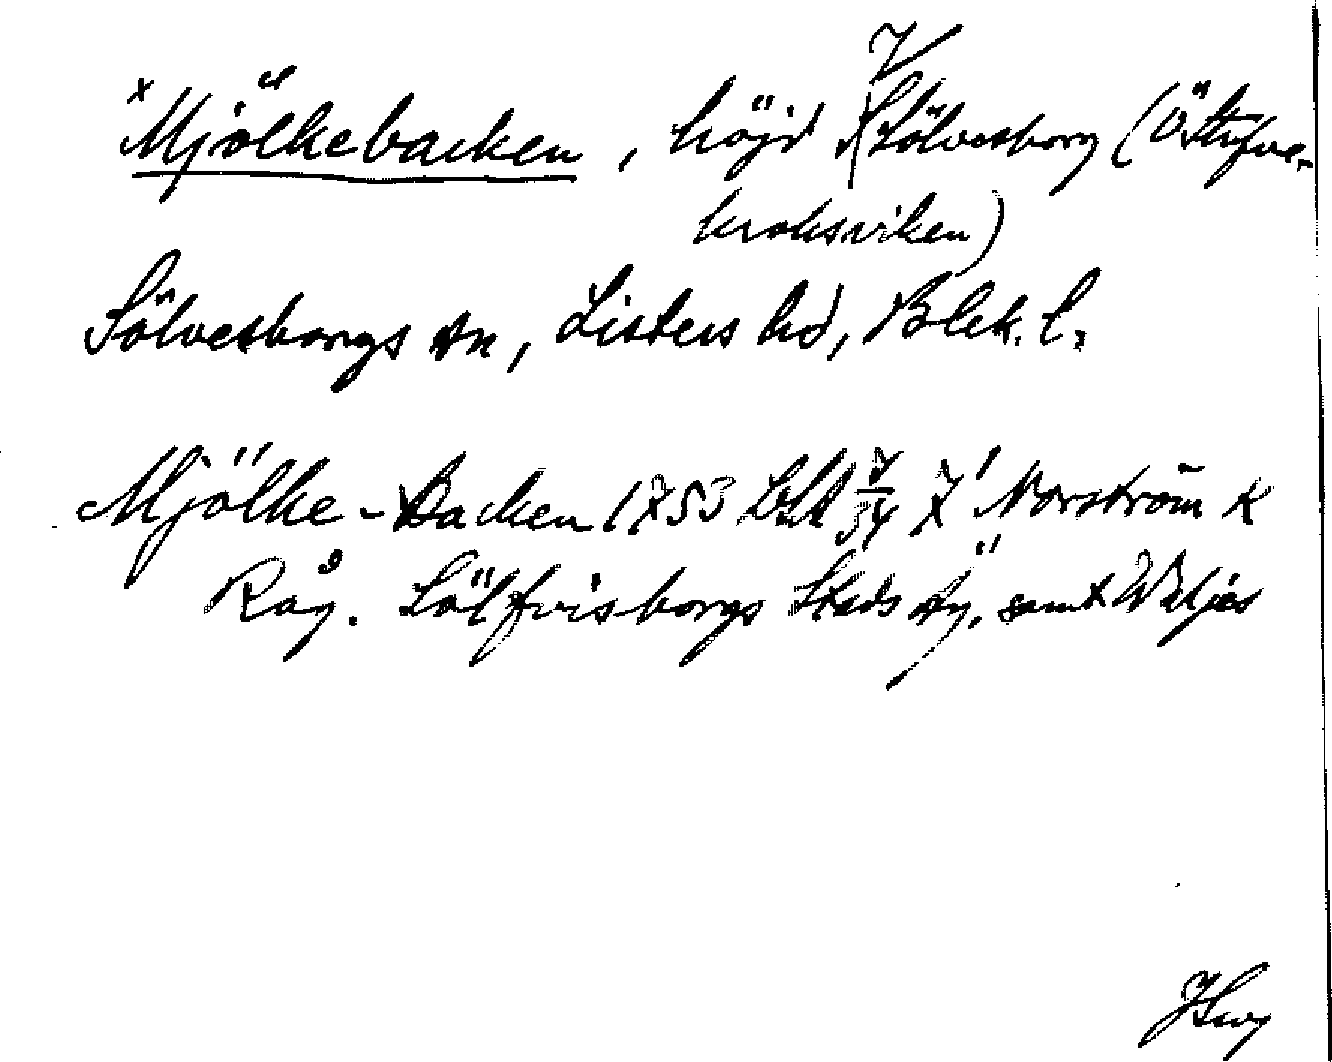 ˣMjölkebacken, höjd V Sölvesborg (Ö
kroksviken)
Sölvesborgs sn, Listers hd, Blek. l.
Mjölke-Backen 1753 7/34 Norström K
Råg. Sölfvisborgs Stads äg, samt